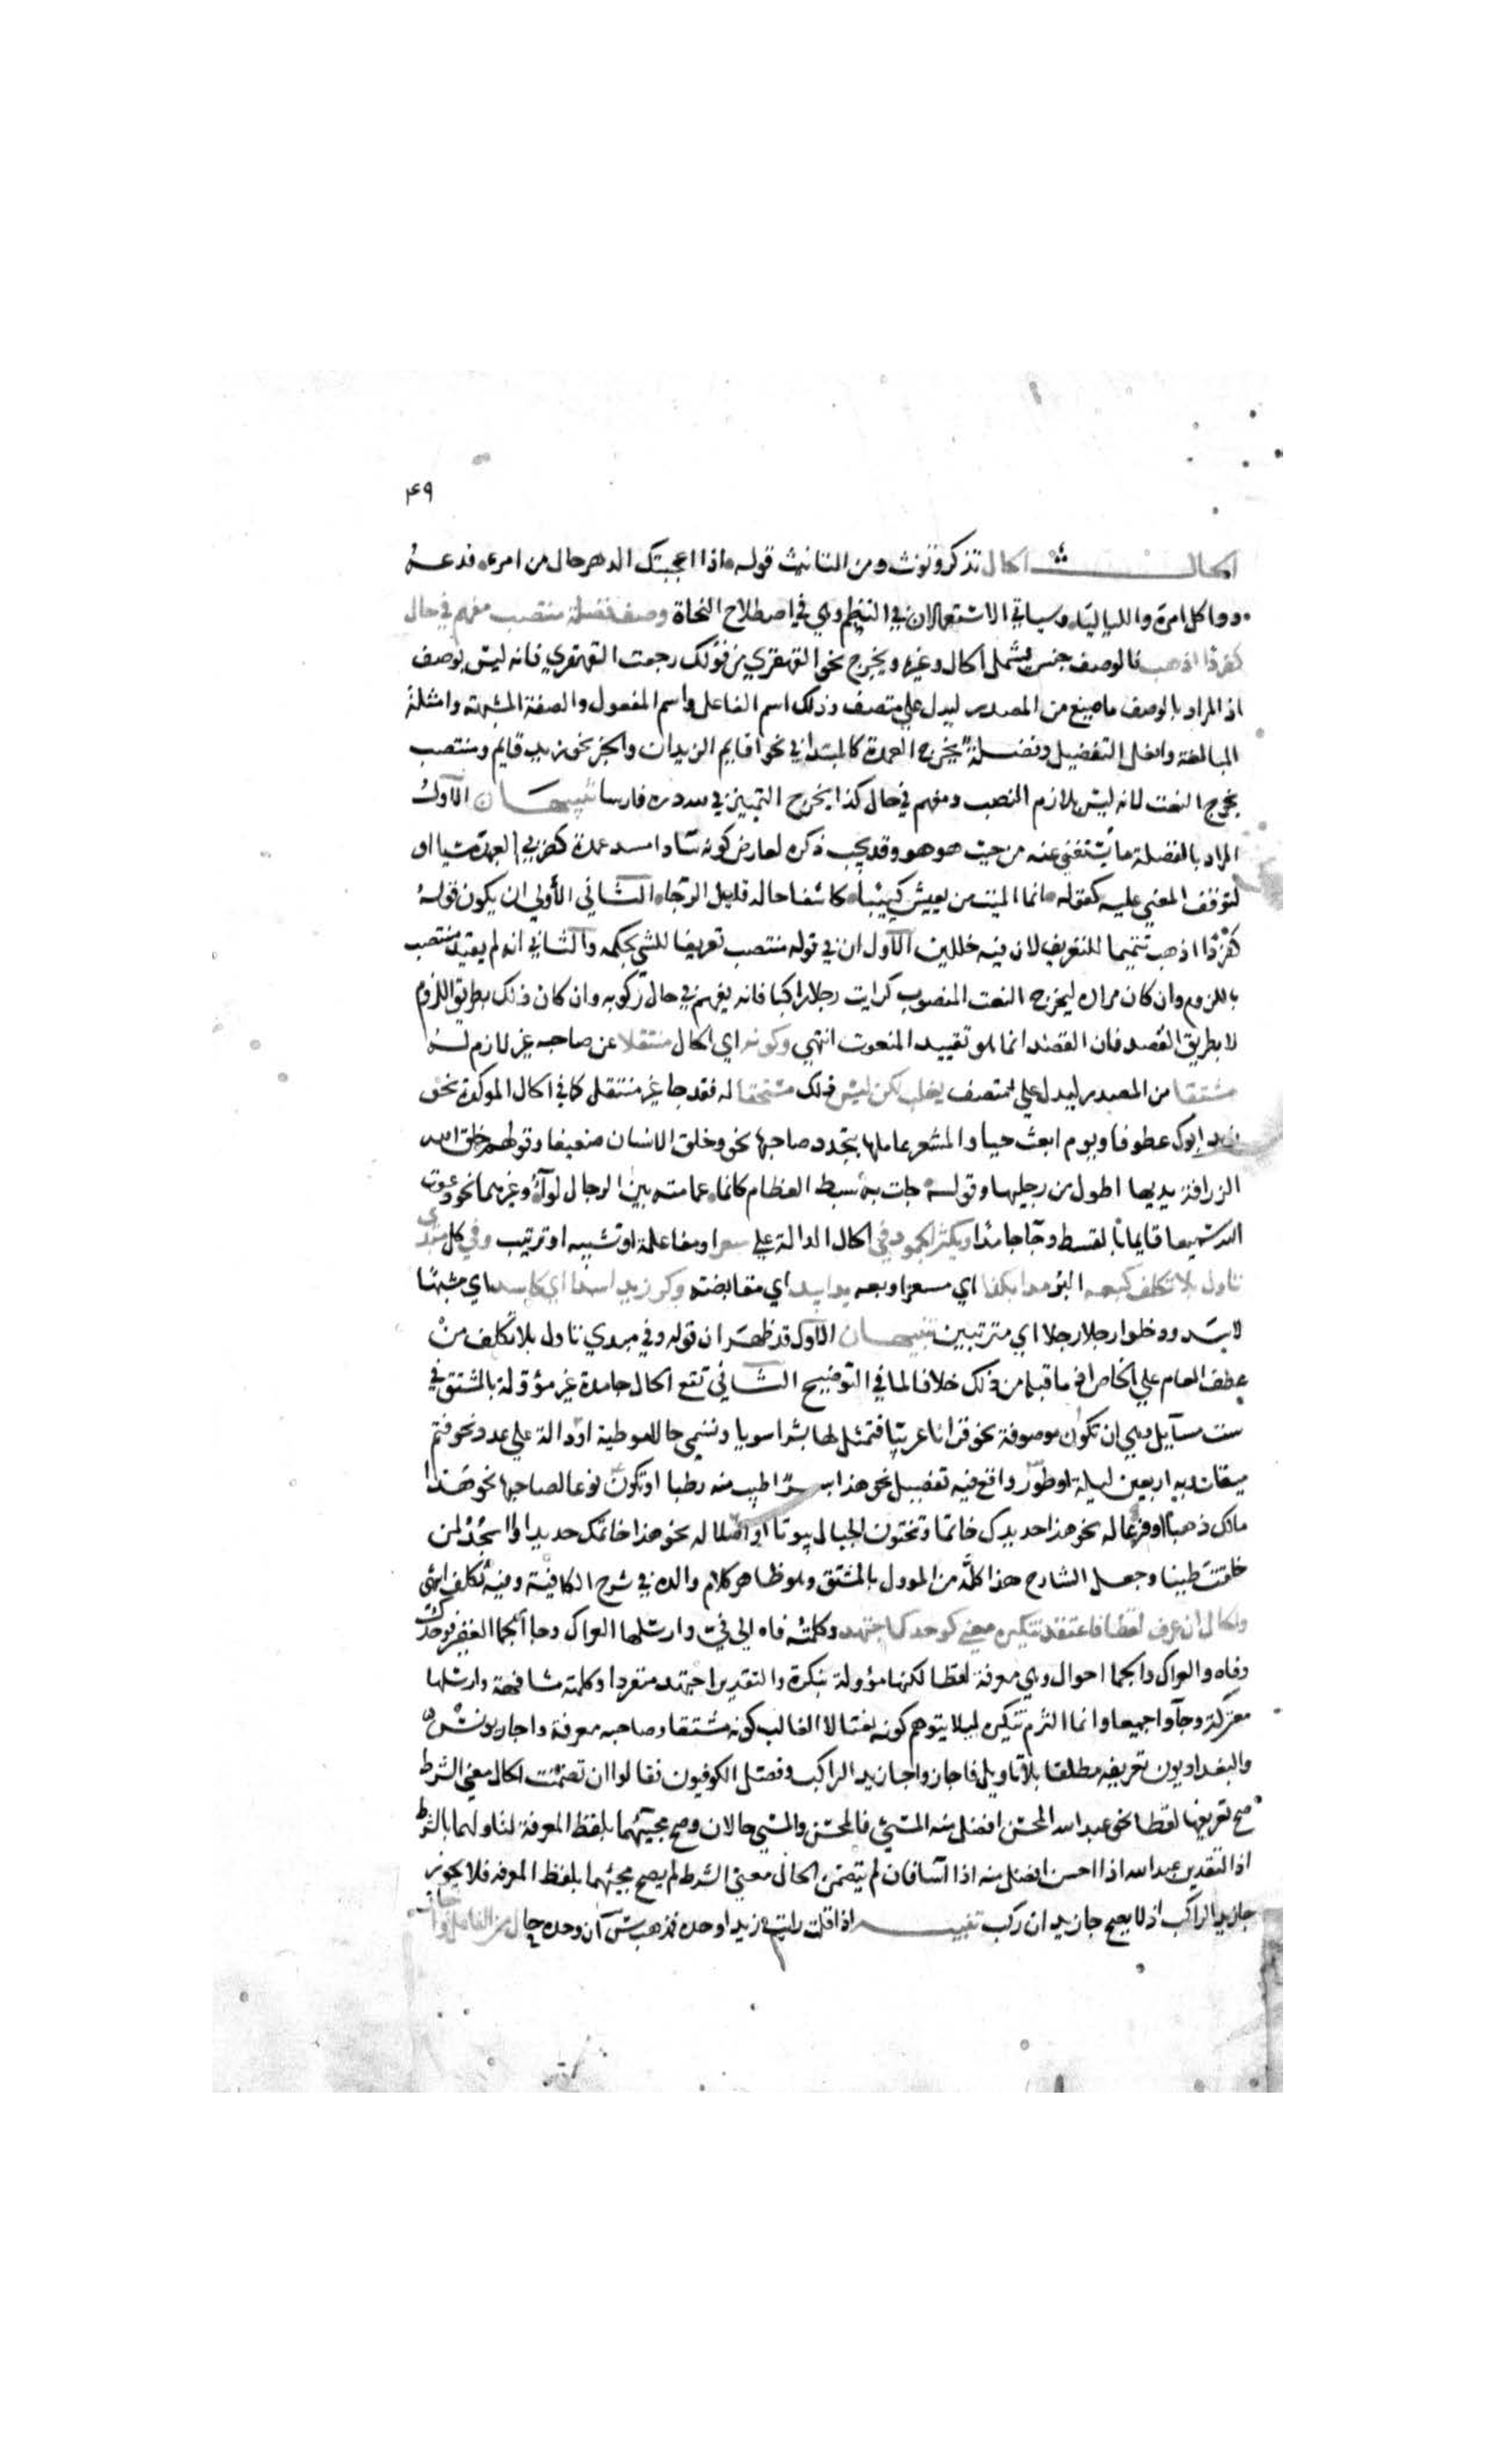 ٢٤٩
الحال ش الحال تذكر وتونث ومن التانيث قوله اذا اعجبتك الدهر حال من امرء فدعه
وواكل امره واللياليا وسياتي الاستعمالان في النظم وهي في اصطلاح النحاة وصف فضلة منتصب مفهم في حال
كفردا اذهب فالوصف جنس يشمل الحال وغيره ويخرج نحو القهقري من قولك رجعت القهقري فانه ليس بوصف
اذ المراد بالوصف ما صيغ من المصدر ليدل علي متصف وذلك اسم الفاعل واسم المفعول والصفة المشبهة وامثلة
المبالغة وافعل التفضيل وفضلة يخرج العمدة كالمبتدا في نحو اقايم الزيدان والخبر نحو زيد قايم ومنتصب
يخرج النعت لانه ليس بلازم النصب ومفهم في حال كذا يخرج التمييز في لله دره فارسا تنبيهان الاول
المراد بالفضلة ما يستغني عنه من حيث هو هو وقد يجب ذكره لعارض كونه سادا مسد عمدة كضربي العبد مسيا او
لتوقف المعني عليه كقوله انما الميت من يعيش كييبا كاسفا باله قليل الرجاء الثاني الأولي ان يكون قوله
كفردا اذهب تتميما للتعريف لان فيه خللين الاول ان في قوله منتصب تعريفا للشي بحكمه والثاني انه لم يقيد منتصب
باللزوم وان كان مراده ليخرج النعت المنصوب كرايت رجلا راكبا فانه يفهم في حال ركوبه وان كان ذلك بطريق اللزوم
لا بطريق القصد فان القصد انما هو تقييد المنعوت انتهي وكونه اي الحال منتقلا عن صاحبه غير لازم له
مشتقا من المصدر ليدل علي متصف يغلب لكن ليس ذلك مستحقا له فقد جا غير منتقل كما في الحال الموكدة نحو
زيد ابوك عطوفا ويوم ابعث حيا والمشعر عاملها بتجدد صاحبها نحو وخلق الانسان ضعيفا وقولهم خلق الله
الزرافة يديها اطول من رجليها وقوله جات به سبط العظام كانما عمامته بين الرجال لواء وغيرهما نحو دعوت
الله سميعا قايما بالقسط وجا جامدا ويكثر الجمود في الحال الدالة علي سعر او مفاعلة او تشبيه او ترتيب وفي كل مبدي
تاول بلا تكلف كبعه البر مدا بكذا اي مسعرا وبعه يدا بيد اي مقابضة وكر زيد اسدا اي كاسد اي مشبها
لاسد ودخلوا رجلا رجلا اي مترتبين تنبيهان الاول قد ظهر ان قوله وفي مبدي تاول بلا تكلف من
عطف العام علي الخاص اذ ما قبله من ذلك خلافا لما في التوضيح الثاني تقع الحال جامدة غير مؤولة بالمشتق في
ست مسايل وهي ان تكون موصوفة نحو قرانا عربيا فتمثل لها بشرا سويا وتسمي حالا موطية او دالة علي عدد نحو فتم
ميقات ربه اربعين ليلة او طور واقع فيه تفضيل نحو هذا بسرا اطيب منه رطبا او تكون نوعا لصاحبها نحو هذا
مالك ذهبا او فرعا له نحو هذا حديدك خاتما وتنحتون الجبال بيوتا او اصلا له نحو هذا خاتمك حديدا واسجد لمن
خلقت طينا وجعل الشارح هذا كله من المودل بالمشتق وهو ظاهر كلام والده في شرح الكافية وفيه تكلف انتهي
والحال ان عرف لفظا فاعتقد تنكيره معني كوحدك اجتهد وكلمته فاه الي في وارسلها العراك وجاءوا الجما الغفير فوحدك
وفاه والعراك والجما احوال وهي معرفة لفظا لكنها مؤولة بنكرة والتقدير اجتهد منفردا وكلمته مشافهة وارسلها
معتركة وجاءوا جميعا وانما التزم تنكيره ليلا يتوهم كونه نعتا لان الغالب كونه مشتقا وصاحبه معرفة واجاز يونس
والبغداديون تعريفه مطلقا بلا تاويل فاجازوا جا زيد الراكب وفصل الكوفيون فقالوا ان تضمنت الحال معني الشرط
صح تعريفها لفظا نحو عبدالله المحسن افضل منه المسيء فالمحسن والمسي حالان وصح مجيئهما بلفظ المعرفة لتاولهما بالشرط
اذ التقدير عبدالله اذا احسن افضل منه اذا اسا فان لم تتضمن الحال معني الشرط لم يصح مجيئهما بلفظ المعرفة فلا يجوز
جا زيد الراكب اذ لا يصح جا زيد ان ركب تنبيه اذا قلت رايت زيدا وحده فمذهب س ان وحده حال من الفاعل واجاز